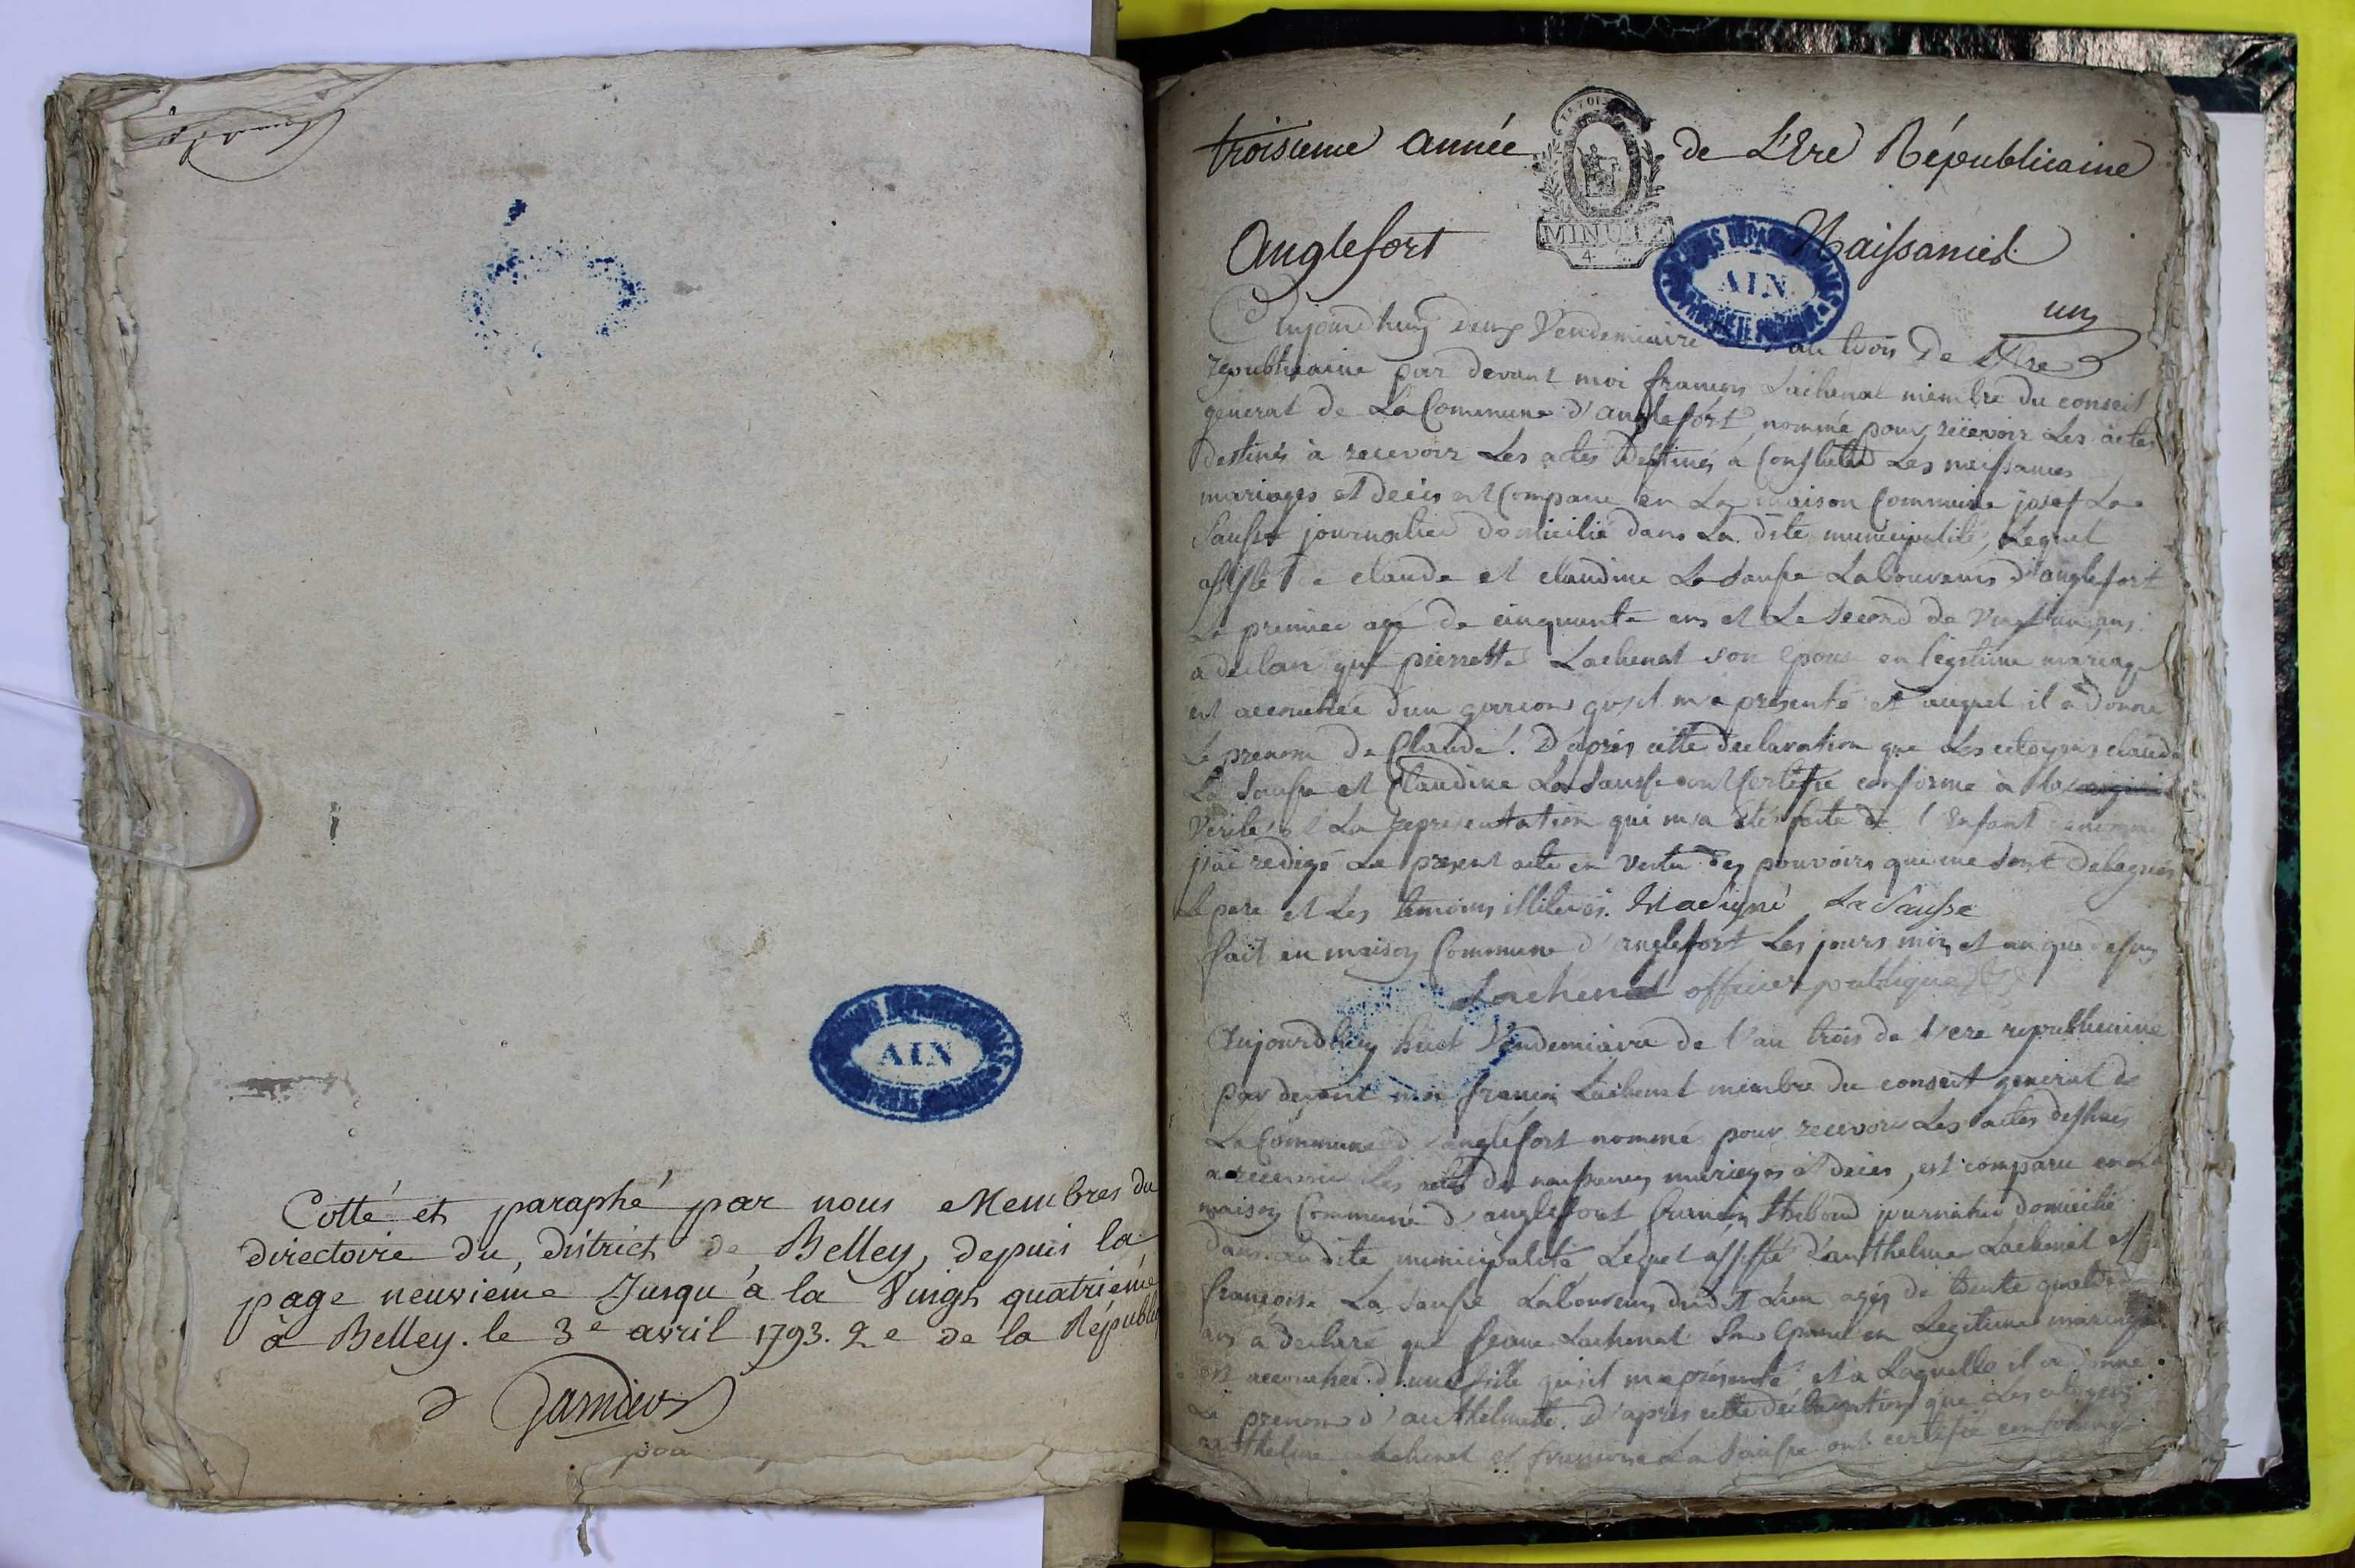 Cotté et paraphé par nous Membres du
directoire du district de Belley, depuis la
page neuvieme Jusqu'à la Vingt quatrieme
à Belley. le 3e avril 1793. 2e de la Républ
Garnier
troisieme année de L'Ere Républicaine
MINUTE
Anglefort Naissances
AIN
AIN
un
Aujourdhuy deux Vendemiaire an trois de L'Ere
republicaine par devant moi françois Lachenal membre du conseil
general de La Commune d'anglefort, nommé pour recevoir Les actes
destinés à recevoir Les actes destinés a Constater Les naissances
mariages et deces est Comparu en La maison Commune josef La
Sausse journalier domicilié dans La dite municipalité, Lequel
assisté de claude et claudine La Sausse Laboureurs d'anglefort
Le premier agé de cinquante ans et Le second de vingt un ans
a declaré que pierrette Lachenal son epouse en legitime mariage
est accouchée d'un garcon qu'il m'a présenté et auquel il a donné
Le prenom de Claude. D'aprés cette declaration que Les citoyens claude
La Sausse et Claudine La Sausse ont Certifié conforme à la
Verité et La representation qui m'a été faite de l'Enfant denommé
j'ai redigé Le present acte en vertu des pouvoirs qui me sont delegués
Le pere et Les temoins illiterés. La Sausse
fait en maison Commune d'anglefort Les jours mois et an que dessus
Lachenal officier publique
Aujourdhuy huit Vendemiaire de l'an trois de l'ere republicaine
par devant moi francois Lachenal membre du conseil general de
La Commune d'anglefort nommé pour recevoir Les actes destinés
a recevoir les actes de naissances mariages et deces, est comparu en La
maison Commune d'anglefort francois Thiboud journalier domicilié
dans La dite municipalité Lequel assisté d'anthelme Lachenal et
francoise La Sausse Laboureurs dudit Lieu agés de trente quatre
ans a declaré que jeanne Lachenal son epouse en Legitime mariage
est accouchée d'une fille qu'il m'a présenté et a Laquelle il a donné
Le prenom d'anthelmette. D'apres cette declaration que Les citoyens
anthelme Lachenal et francoise La Sausse ont certifié conforme